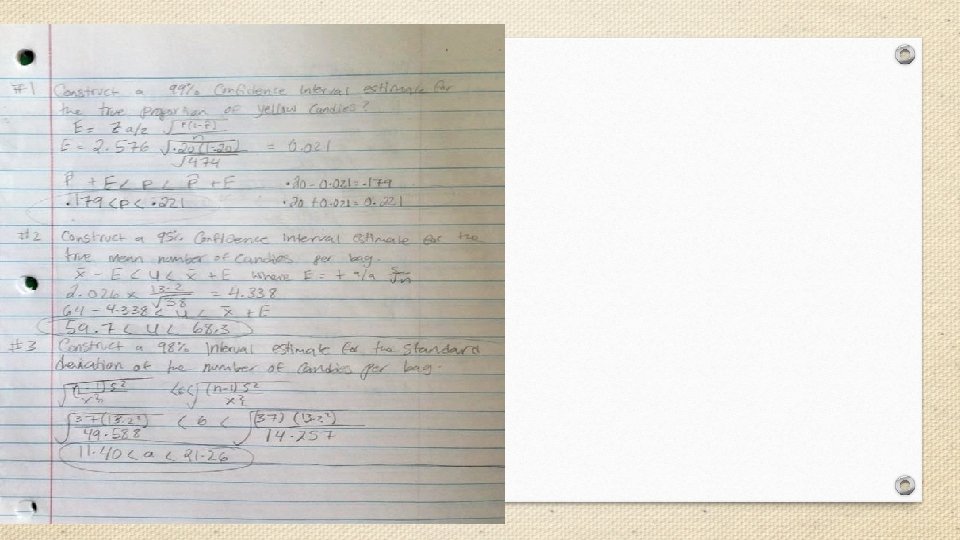 #1 Construct a 99% Confidence Interval estimate for
the true proportion of yellow Candies?
E = Z a/2 √P(1-P)/n
E = 2.576 √.20(1-.20)/√474 = 0.021
P̂ + E < P < P̂ + E .20 - 0.021 = .179
.179 < P < .221 .20 + 0.021 = 0.221
#2 Construct a 95% Confidence Interval estimate for the
true mean number of Candies per bag.
x̄ - E < u < x̄ + E Where E = t a/a s/√n
2.026 x 13.2/√38 = 4.338
64 - 4.338 < u < x̄ + E
59.7 < u < 68.3
#3 Construct a 98% Interval estimate for the Standard
deviation of the number of Candies per bag.
√(n-1)s²/x² < 6 < √(n-1)s²/x²
√37(13.2²)/49.588 < 6 < √(37)(13.2²)/14.257
11.40 < a < 21.26